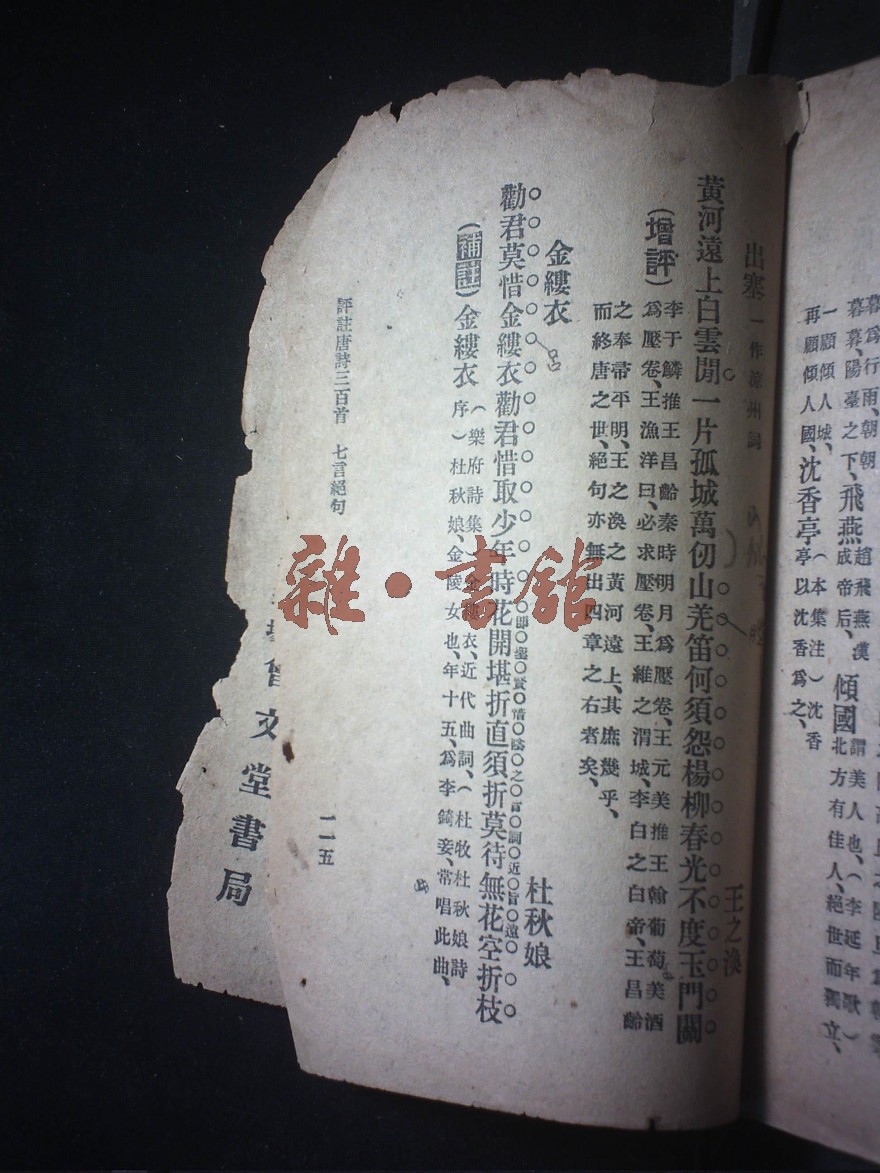 暮爲行雨、朝朝
暮暮、陽臺之下、飛燕趙飛燕漢
成帝后、傾國謂美人也、(李延年歌)
北方有佳人、絕世而獨立、
一顧傾人城、
再顧傾人國、沈香亭(本集注)沈香
亭以沈香爲之、
出塞 一作涼州詞 王之渙
黃河遠上白雲閒一片孤城萬仞山羌笛何須怨楊柳春光不度玉門關
(增評)李于鱗推王昌齡秦時明月爲壓卷、王元美推王翰葡萄美酒
爲壓卷、王漁洋曰、必求壓卷、王維之渭城、李白之白帝、王昌齡
之奉帚平明、王之渙之黃河遠上、其庶幾乎、
而終唐之世、絕句亦無出四章之右者矣、
金縷衣 杜秋娘
勸君莫惜金縷衣勸君惜取少年時花開堪折直須折莫待無花空折枝
卽聖賢惜陰之旨詞近旨遠
(補註)金縷衣(樂府詩集)金縷衣、近代曲詞、(杜牧杜秋娘詩
序)杜秋娘、金陵女也、年十五、爲李錡妾、常唱此曲、
評註唐詩三百首 七言絕句 一一五
會文堂書局
雜·書館